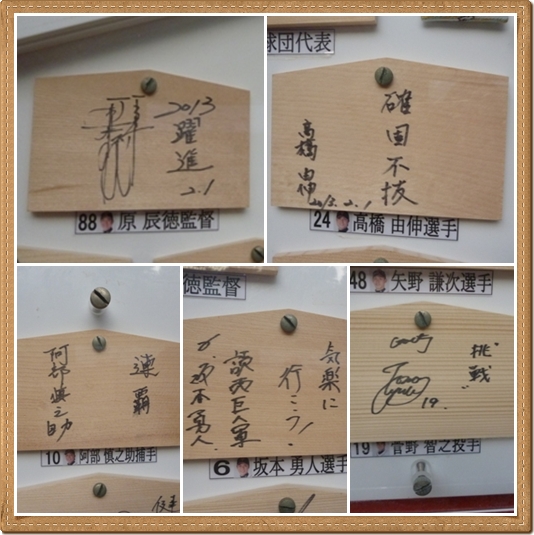 2013
躍進
2.1
88 原 辰徳監督
球団代表
確固不抜
高橋由伸
2013.2.1
24 高橋 由伸選手
連覇
阿部慎之助
10 阿部 慎之助捕手
徳監督
気楽に
行こう!
読売巨人軍
坂本勇人
6 坂本 勇人選手
48 矢野 謙次選手
挑戦
19.
19 菅野 智之投手